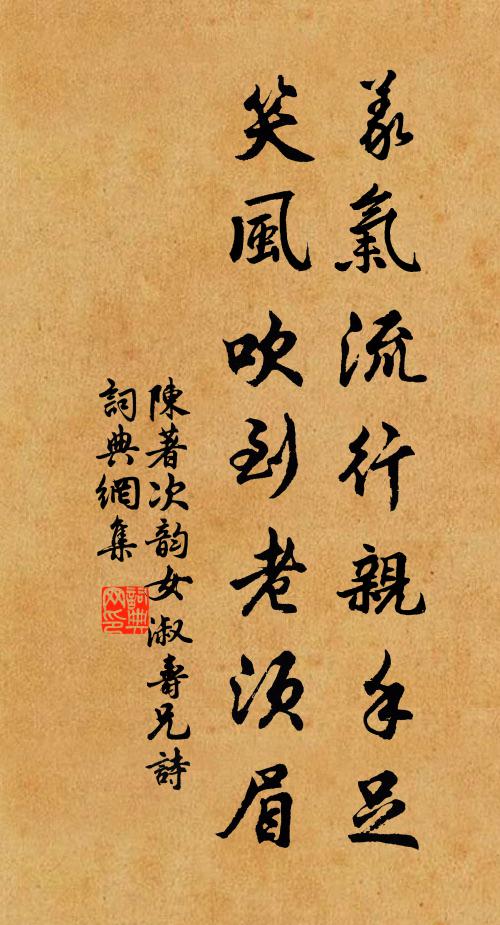 義氣流行親手足
笑風吹到老須眉
陳著次韵女淑壽兄詩
詞典網集
詞典
网印